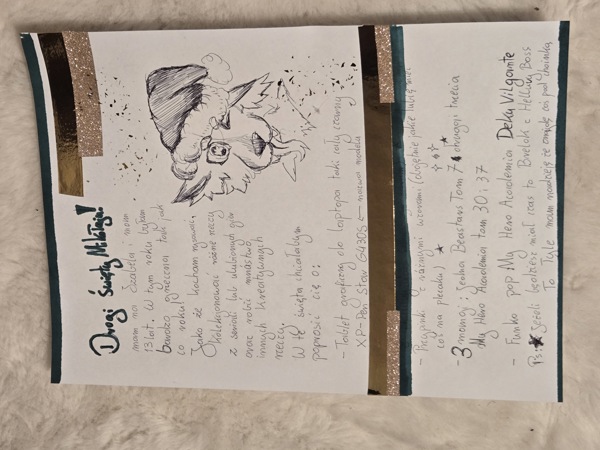 Drogi Święty Mikołaju!
mam na Izabela i mam
13 lat. W tym roku byłam
bardzo grzeczna tak jak
co roku.
Jako że kocham rysować,
kolekcjonować różne rzeczy
z seriali lub ulubionych gier
oraz robić mnóstwo
innych kreatywnych
rzeczy.
W te święta chciałabym
poprosić cię o:
- Tablet graficzny do laptopa taki cały czarny
XP-Pen Star G430S ← nazwa modelu
- Przypinki z różnymi wzorami (obojętnie jakie lubię mieć
coś na plecaku)
- 3 mangi: jedna Beastars Tom 7 a druga i trzecia
My Hero Academia tom 30 i 37
- Funko pop My Hero Academia Deku Vilgante
Ps: Jeżeli będziesz miał czas to Brelok z Helluva Boss
To Tyle mam nadzieję że znajdę coś pod choinką